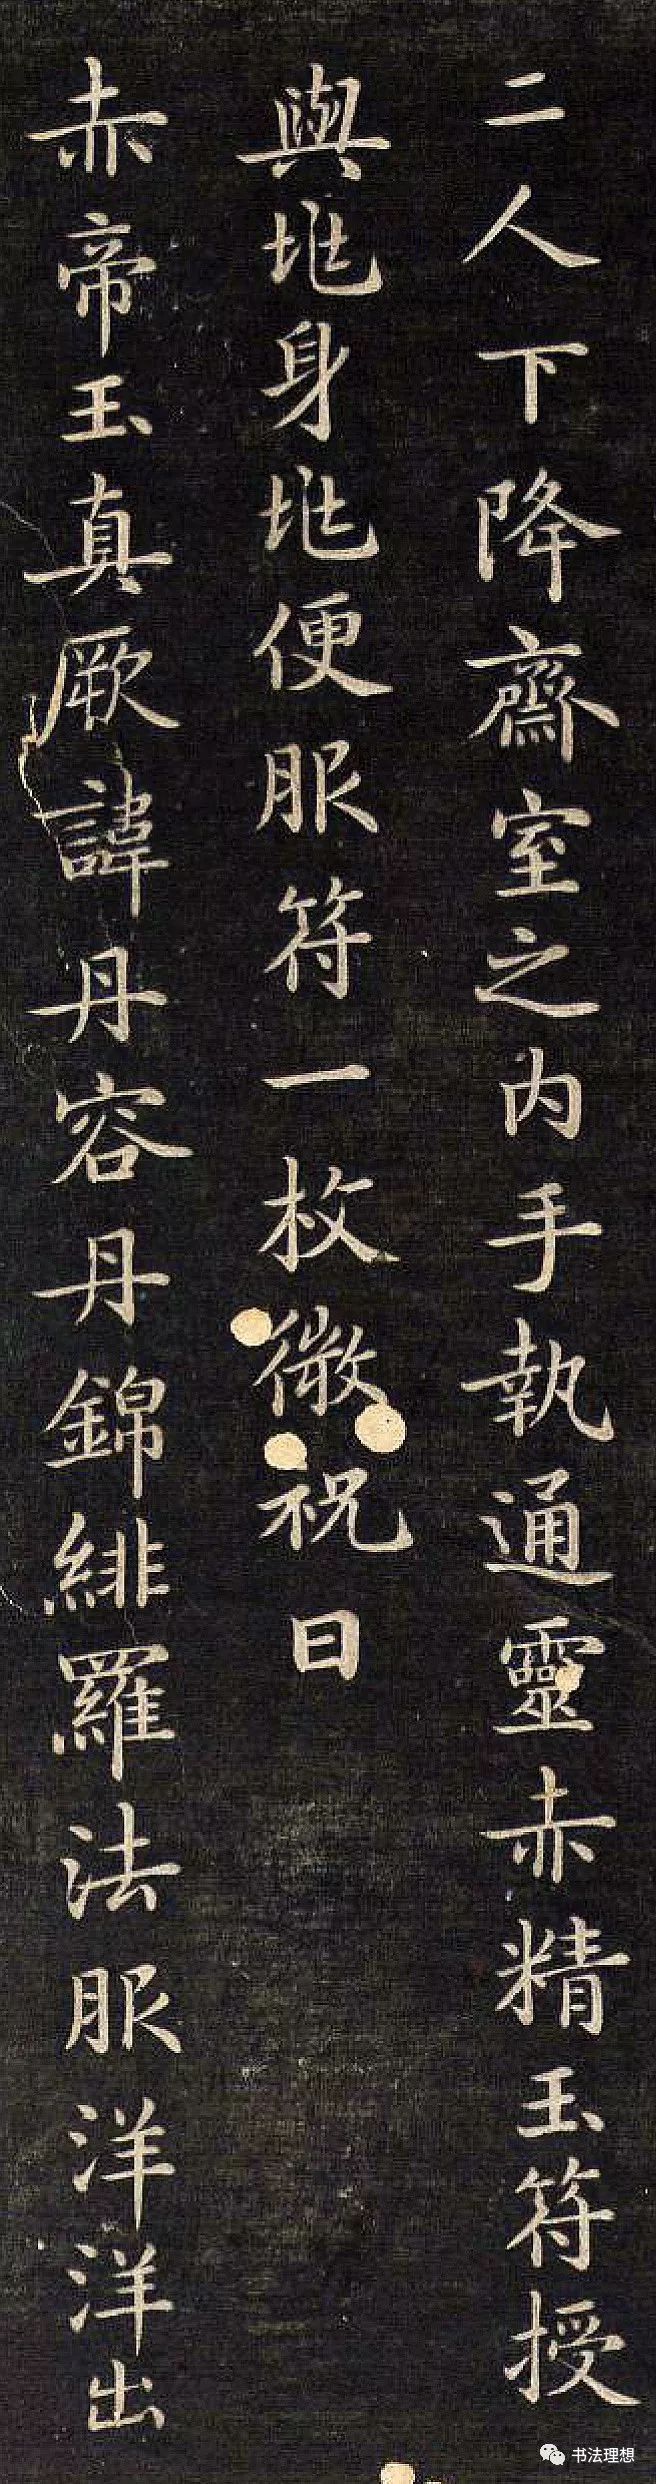 二人下降齋室之內手執通靈赤精玉符授
與兆身兆便服符一枚微祝曰
赤帝玉真厥諱丹容丹錦緋羅法服洋洋出
书法理想